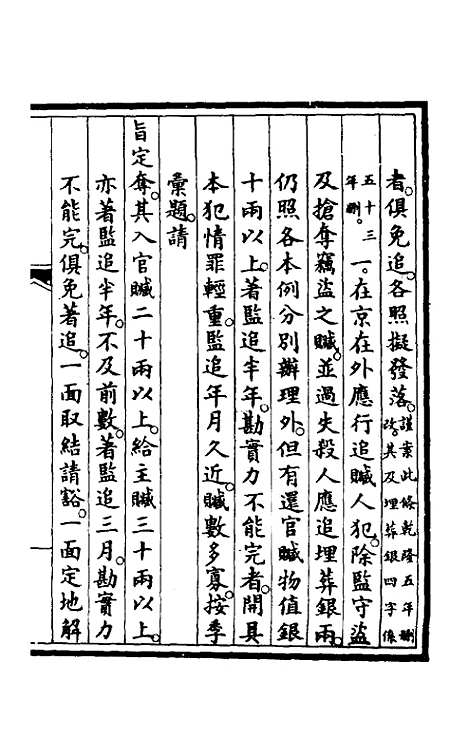 者。俱免追。各照擬發落。謹案此條乾隆五年刪改。其及埋葬銀四字係
五十三年刪。一。在京在外應行追贓人犯。除監守盜
及搶奪竊盜之贓。並過失殺人應追埋葬銀兩。
仍照各本例分別辦理外。但有還官贓物值銀
十兩以上。著監追半年。勘實力不能完者。開具
本犯情罪輕重。監追年月久近。贓數多寡。按季
彙題。請
旨定奪。其入官贓二十兩以上。給主贓三十兩以上。
亦著監追半年。不及前數。著監追三月。勘實力
不能完。俱免著追。一面取結請豁。一面定地解